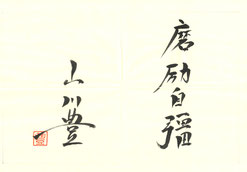 磨励自彊
山川豊